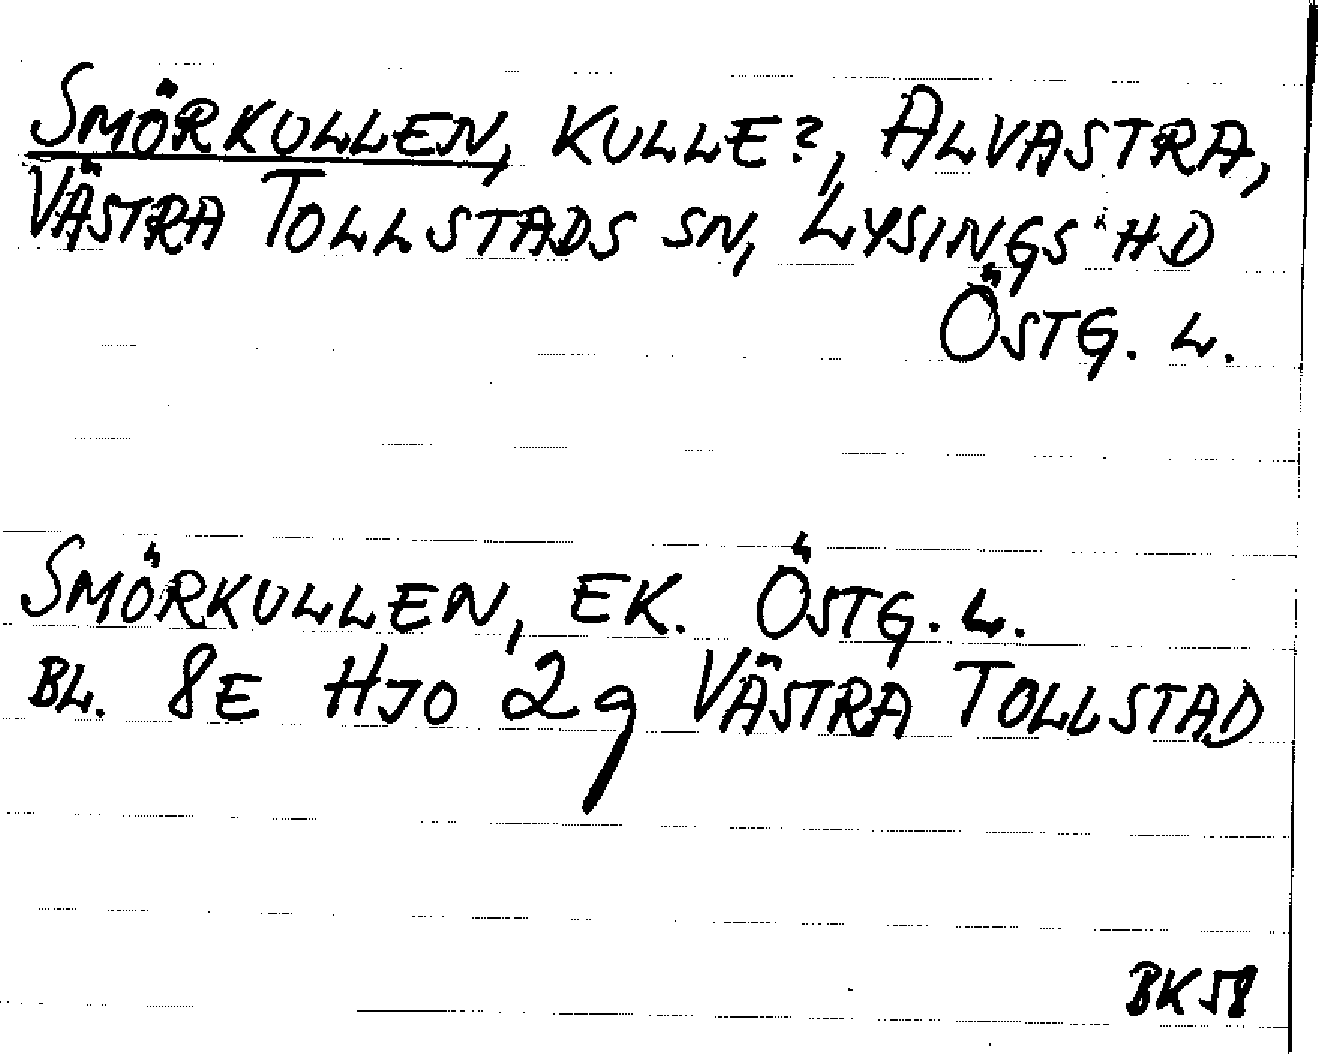 SMÖRKULLEN, KULLE?, ALVASTRA,
VÄSTRA TOLLSTADS SN, LYSINGS HD
ÖSTG. L.
SMÖRKULLEN, EK. ÖSTG. L.
BL. 8E HJO 2g VÄSTRA TOLLSTAD
BK58